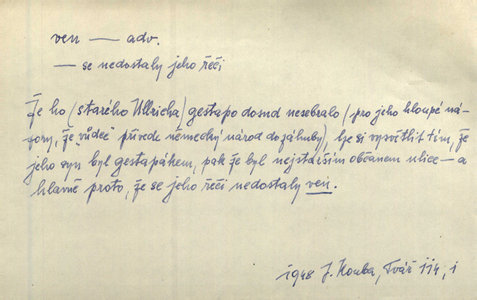 ven — adv.
— se nedostaly jeho řeči
Že ho (starého Ullricha) gestapo dosud nesebralo (pro jeho hloupé ná-
zory, že "vůdce" přivede německý národ do záhuby), lze si vysvětlit tím, že
jeho syn byl gestapákem, pak že byl nejstarším občanem ulice — a
hlavně proto, že se jeho řeči nedostaly ven.
1948 J. Kouba, Tvář 114, i